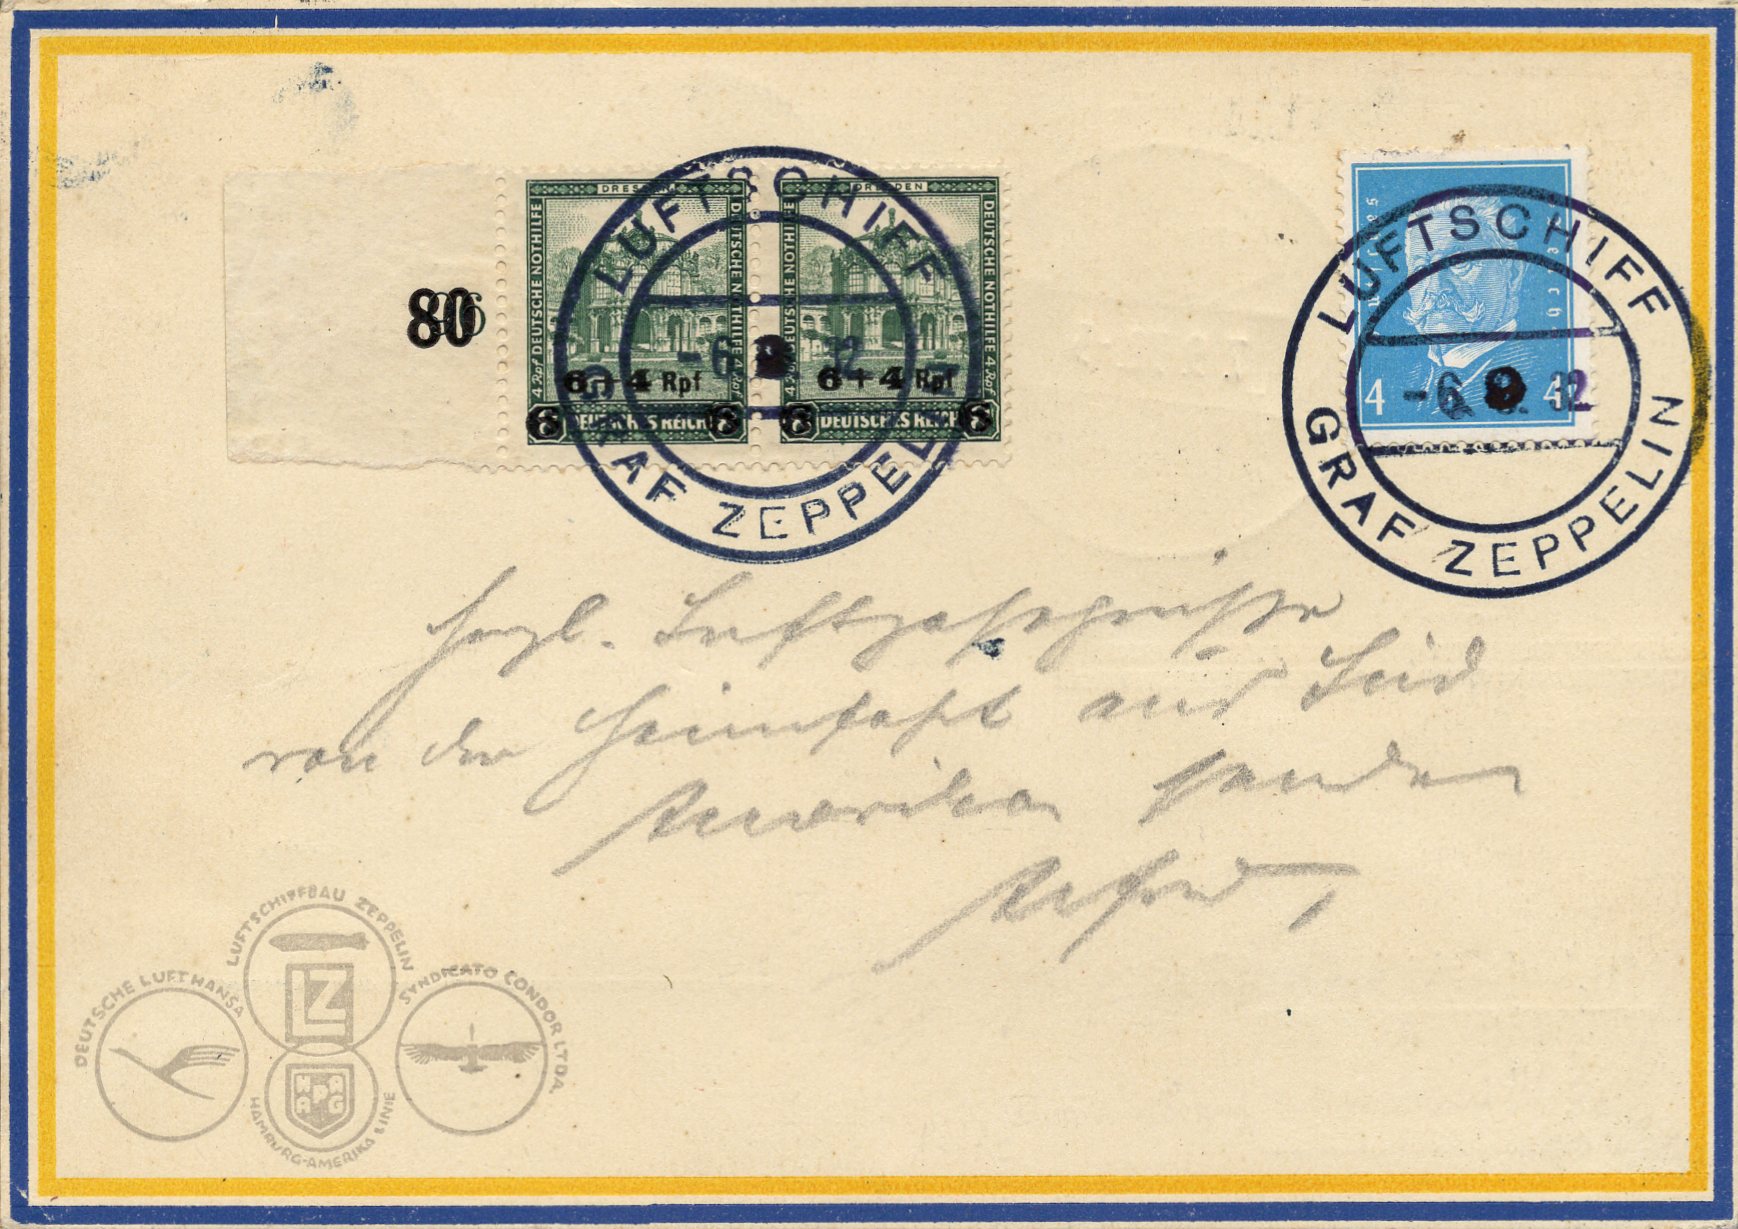 DRESDEN
DEUTSCHE NOTHILFE
4 Rpf
DEUTSCHE NOTHILFE 4 Rpf
6+4 Rpf
DEUTSCHES REICH
DRESDEN
DEUTSCHE NOTHILFE
DEUTSCHE NOTHILFE 4 Rpf
6+4 Rpf
DEUTSCHES REICH
80
LUFTSCHIFF
-6. 32
GRAF ZEPPELIN
4
4
LUFTSCHIFF
-6. 32
GRAF ZEPPELIN
Herzl. Luftpostgrüsse
von der Heimfahrt aus Süd
Amerika senden
DEUTSCHE LUFTHANSA
LUFTSCHIFFBAU ZEPPELIN
LZ
SYNDICATO CONDOR LTDA.
HAPAG
HAMBURG-AMERIKA LINIE